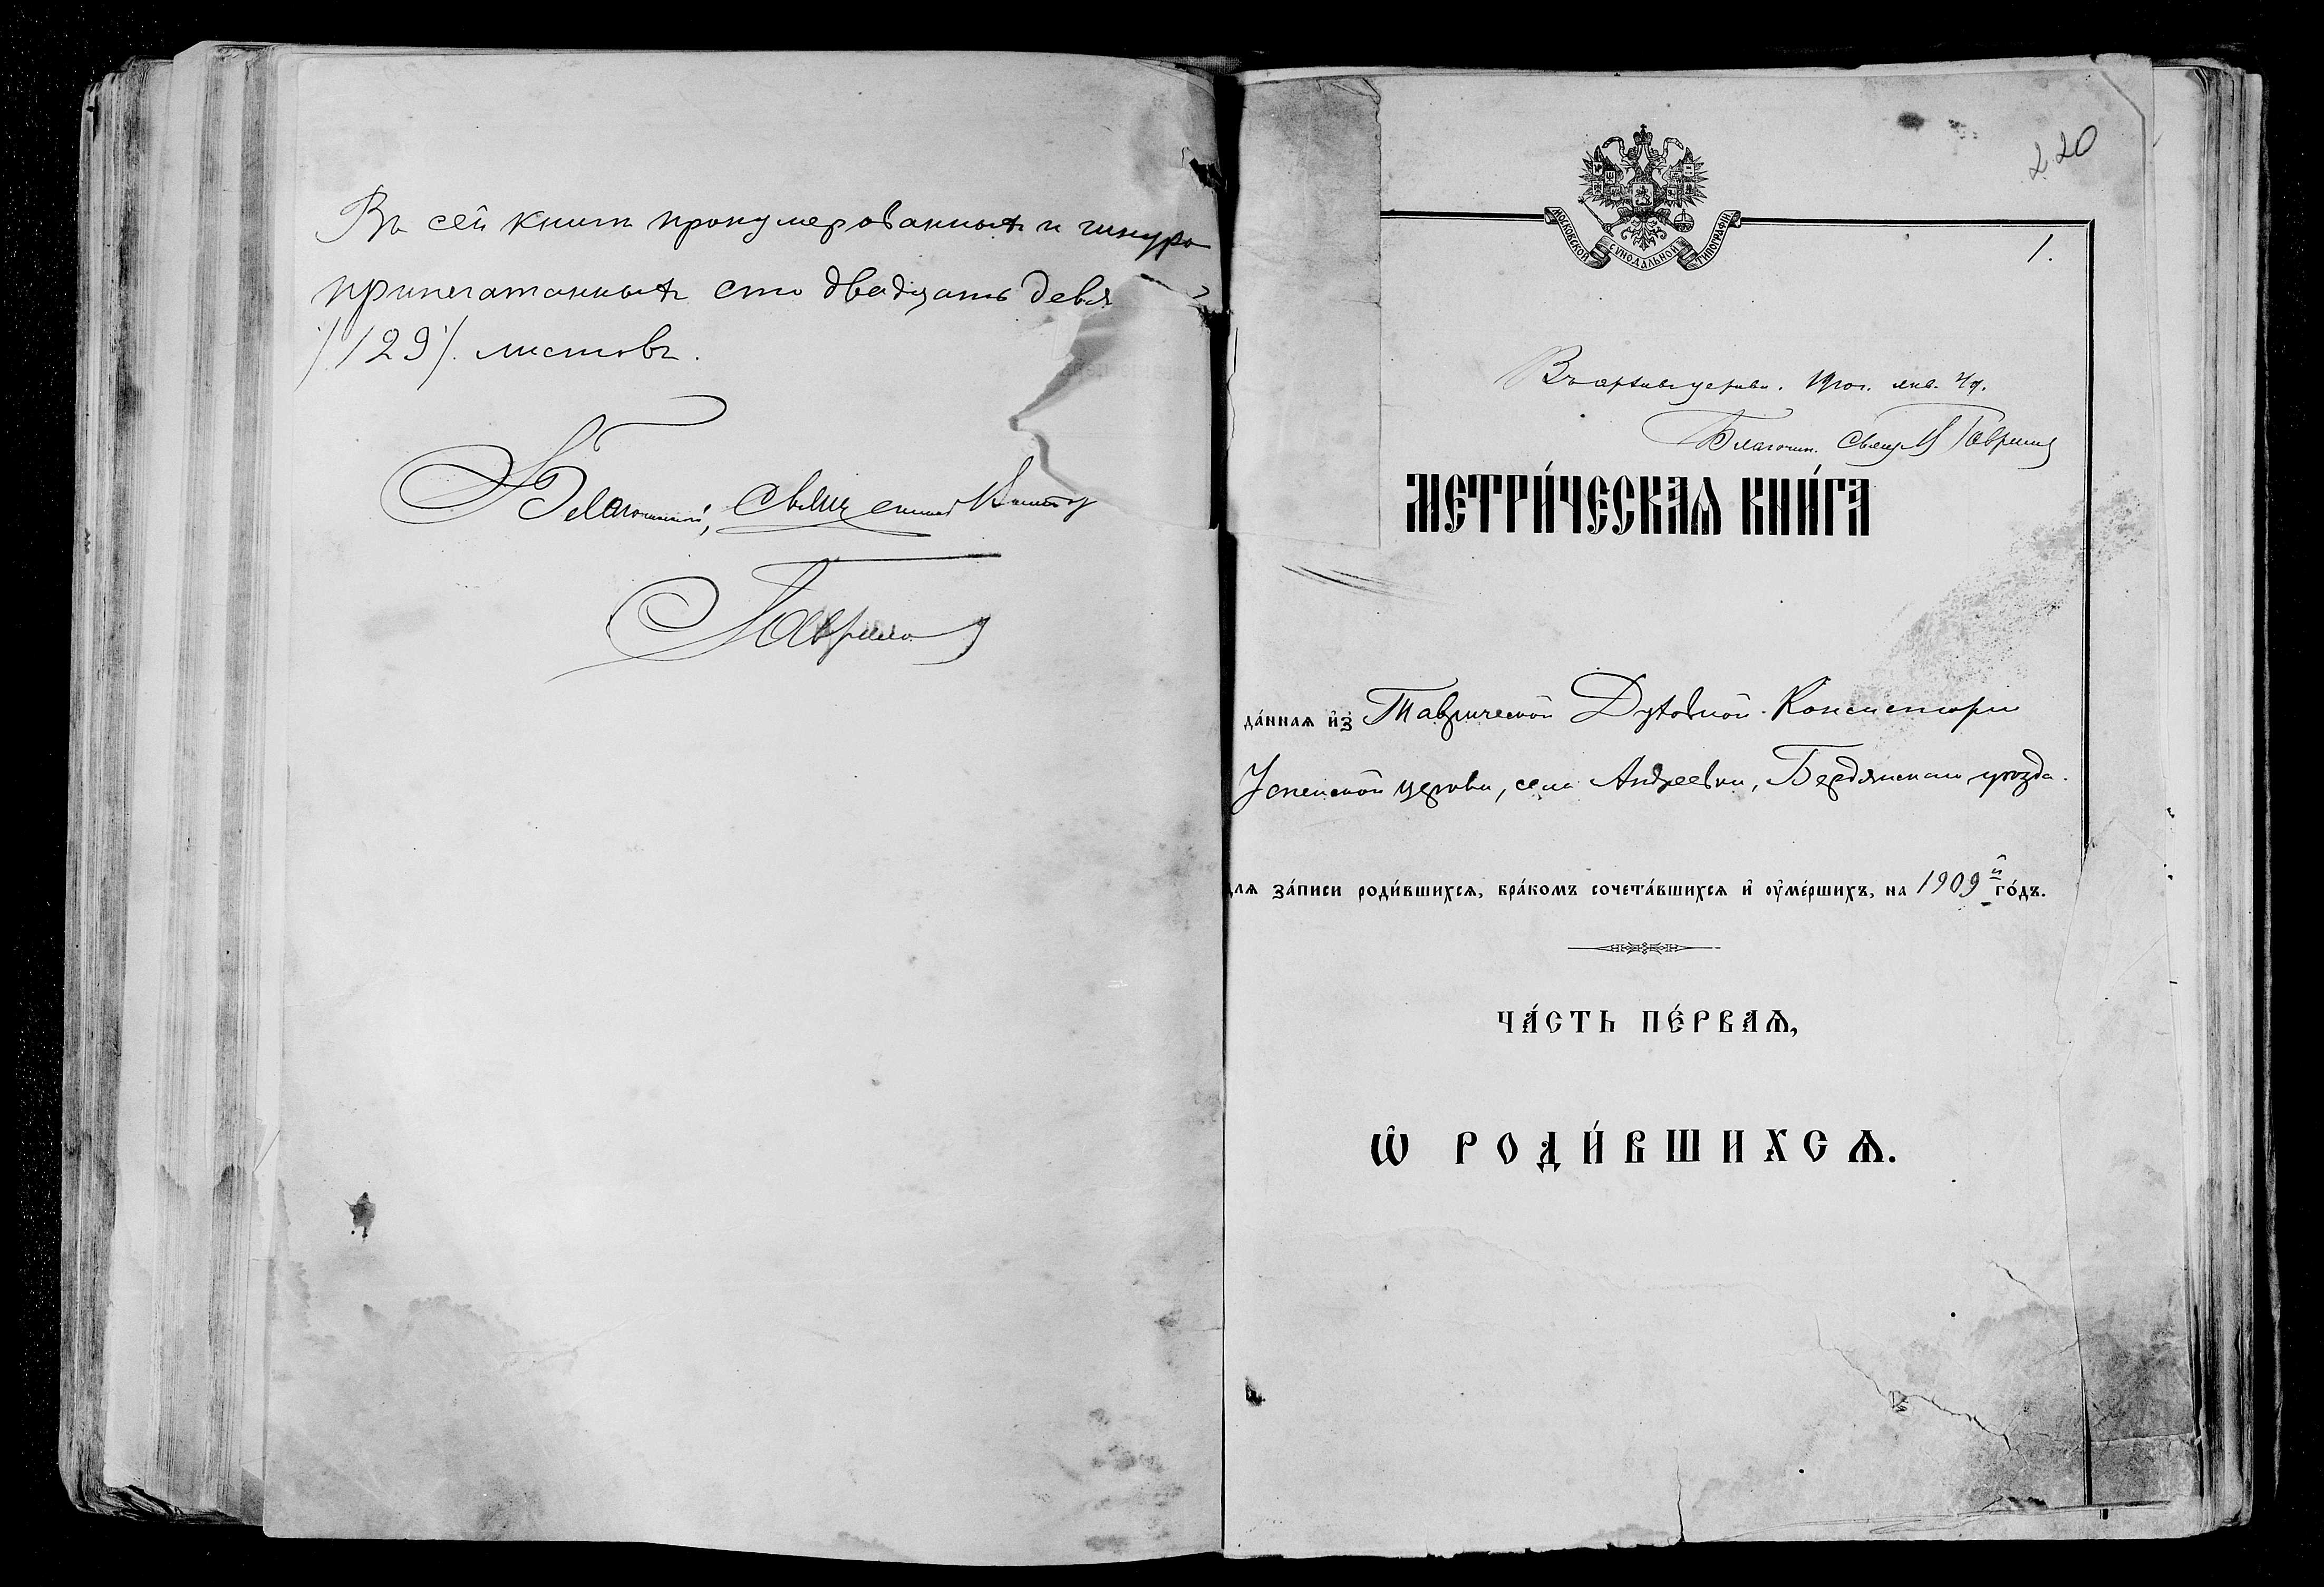 Въ сей книгѣ пронумерованныхъ и шнуро
припечатанныхъ сто двадцать девя
/129/. листовъ.
Благочинный, Священникъ
Гаврилов
220
МОСКОВСКОЙ СѴНОДАЛЬНОЙ ТИПОГРАФІИ
1.
Въ архивъ церкви. 1910 г. янв.
Благочин. Свящ. Гаврилов
МЕТРИ́ЧЕСКАѦ КНИ́ГА
да́ннаѧ и҆з̾ Таврической Духовной Консисторіи
Успенской церкви, села Андреевки, Бердянскаго уѣзда.
для за́писи роди́вшихсѧ, бра́комъ сочета́вшихсѧ и҆ ᲂу҆ме́ршихъ, на 1909й го́дъ.
ЧА́СТЬ ПЕ́РВАѦ,
Ѽ РОДИ́ВШИХСѦ.